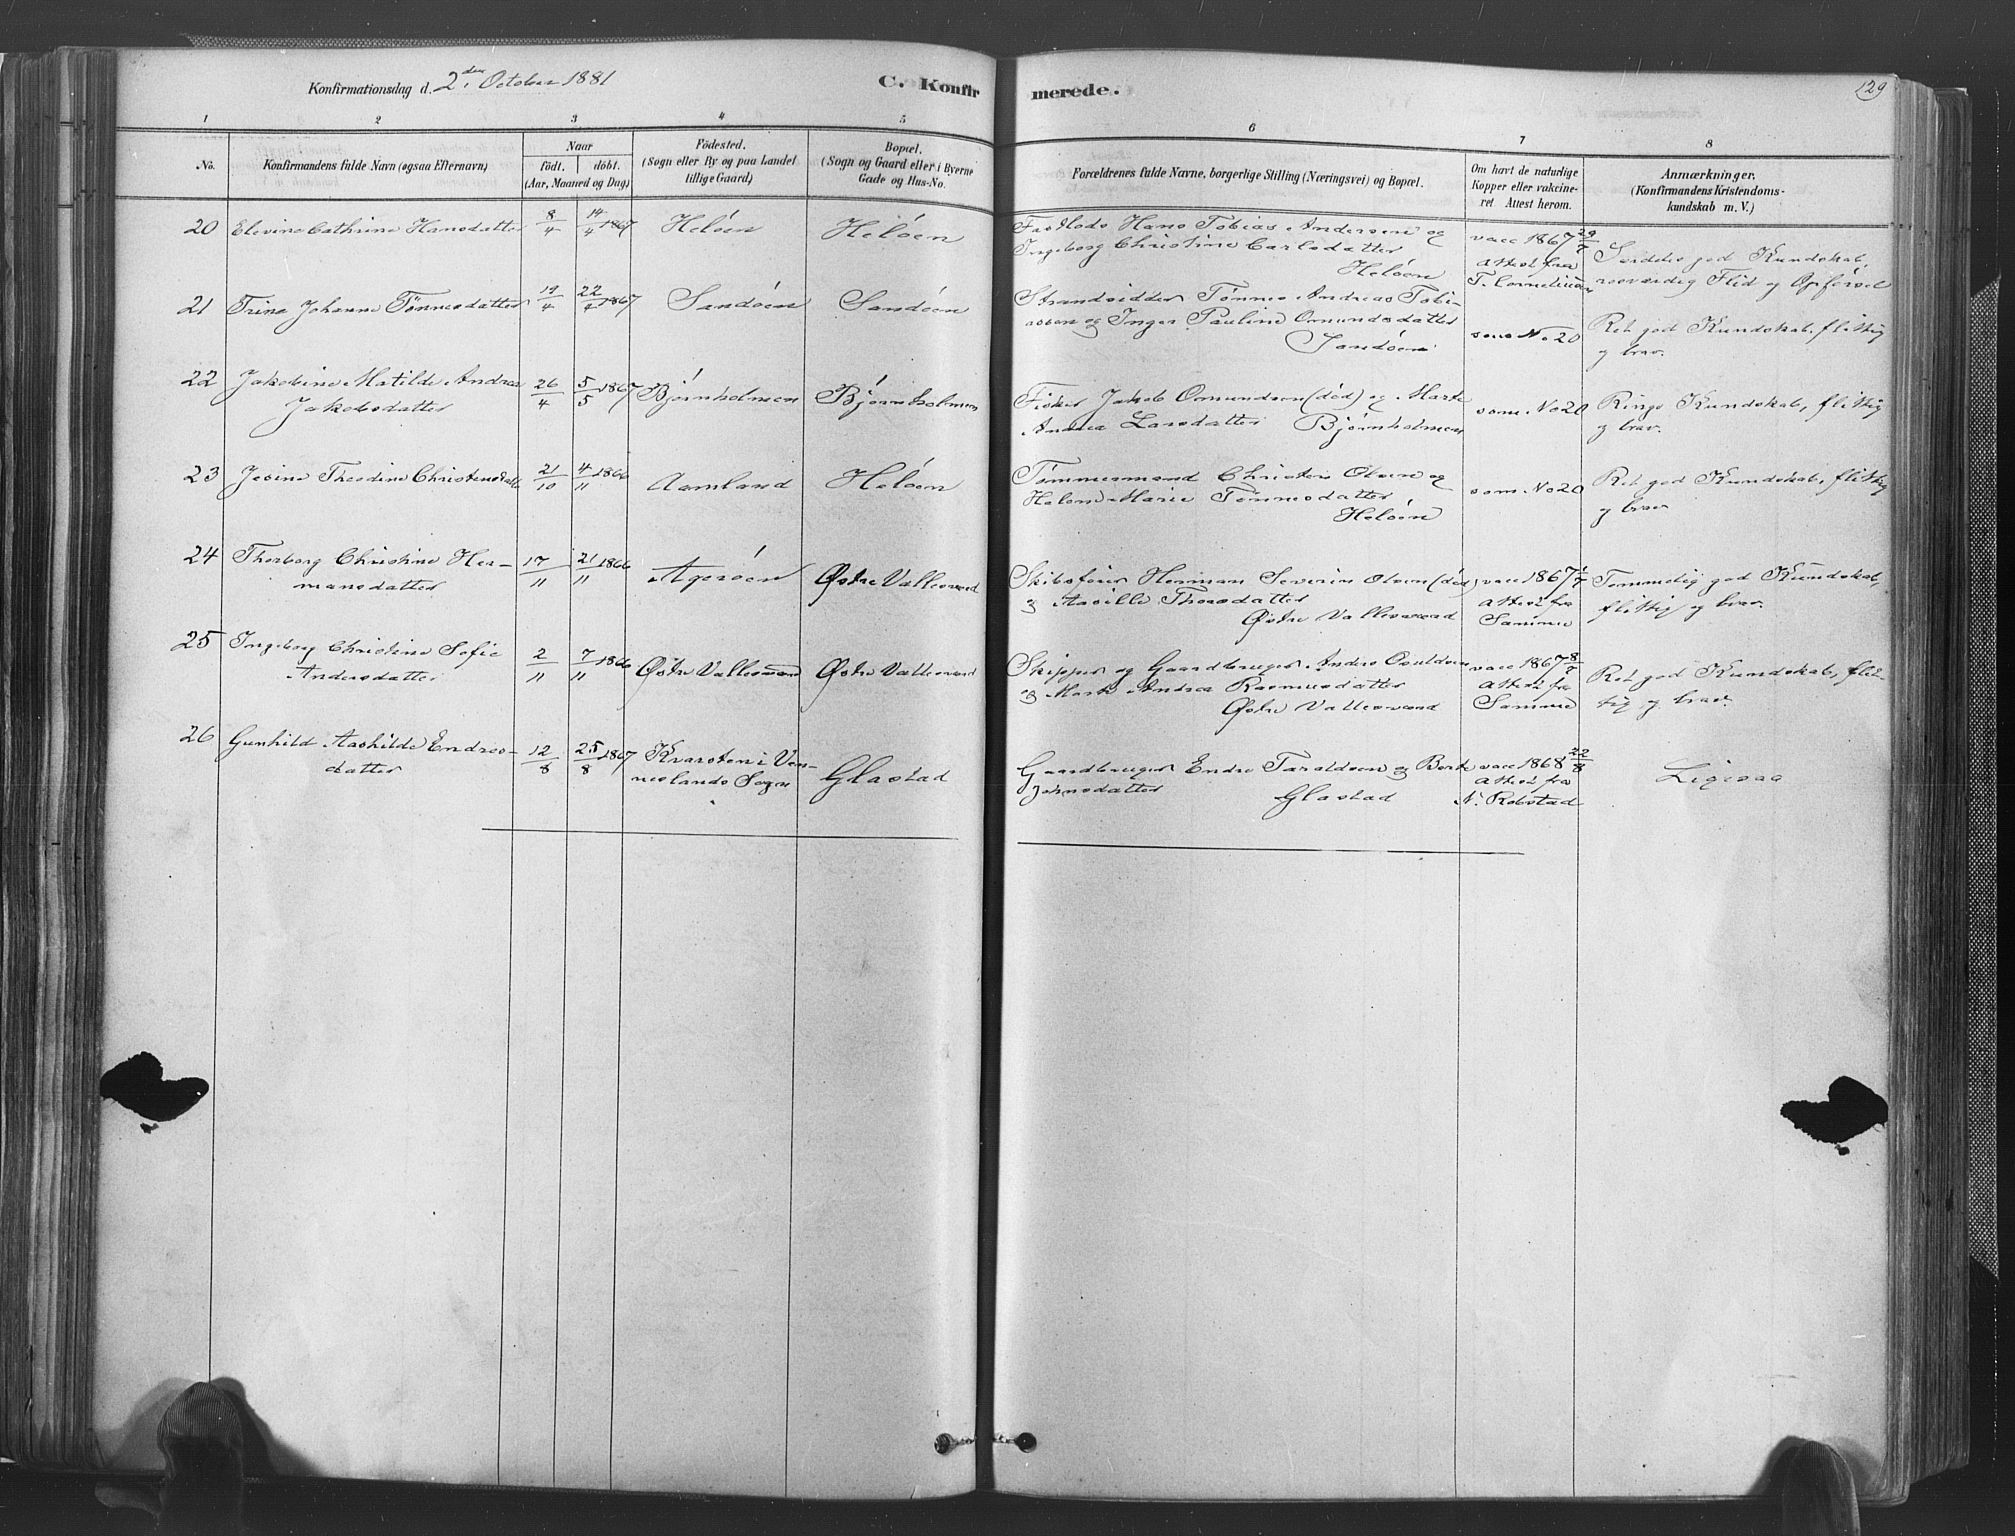 Konfirmationsdag d. 2den October 1881
C. Konfirmerede.
129
1 2 3 4 5 6 7 8
No.
Konfirmandens fulde Navn (ogsaa Efternavn)
Naar
født. døbt.
(Aar, Maaned og Dag)
Fødested.
(Sogn eller By og paa Landet
tillige Gaard)
Bopæl.
(Sogn og Gaard eller i Byerne
Gade og Hus-No.
Forældrenes fulde Navne, borgerlige Stilling (Næringsvei) og Bopæl.
Om havt de naturlige
Kopper eller vakcine-
ret Attest herom.
Anmærkninger.
(Konfirmandens Kristendoms-
kundskab m. V.)
20 Elevine Cathrine Hansdatter 8/4 14/4 1867 Heløen Heløen
Hans Tobias Andersen og
Ingeborg Christine Carlsdatter
Heløen
vacc 1867 29/7
attest fra
T. Cornelius
Særdeles god Kundskab,
rosværdig Flid og Opførsel
21 Trine Johanne Tønnesdatter 19/4 22/4 1867 Sandøen Sandøen
Strandsidder Tønnes Andreas Tobi-
assen og Inger Pauline Omundsdatter
Sandøen
som No 20
Ret god Kundskab, flittig
og brav.
22 Jakobine Matilde Andrea
Jakobsdatter
26/4 5/5 1867 Bjørnholmen Bjørnholmen
Fisker Jakob Omundsen (død) og Marte
Andrea Larsdatter Bjørnholmen
som No 20
Ringe Kundskab, flittig
og brav.
23 Jesine Theodine Christensdatter 21/10 4/11 1866 Aamland Heløen
Tømmermand Christen Olsen og
Helene Marie Tønnesdatter
Heløen
som No 20
Ret god Kundskab, flittig
og brav
24 Thorborg Christine Her-
mansdatter
17/11 21/11 1866 Agerøen Østre Vallesværd
Skibsfører Herman Severin Olsen (død)
og Aasille Thorsdatter
Østre Vallesværd
vacc 1867 1/7
attest fra
Samme
Temmelig god Kundskab,
flittig og brav.
25 Ingeborg Christine Sofie
Andersdatter
2/11 7/11 1866 Østre Vallesværd Østre Vallesværd
Skipper og Gaardbruger Anders Osuldsen
og Marte Andrea Rasmusdatter
Østre Vallesværd
vacc 1867 8/7
attest fra
Samme
Ret god Kundskab, flit-
tig og brav.
26 Gunhild Aashilde Endres-
datter
12/8 25/8 1867
Kvarsten i Ven-
neslands Sogn
Glastad
Gaardbruger Endre Taraldsen og Berte
Johnsdatter Glastad
vacc 1868 22/8
attest fra
N. Robstad
Ligesaa